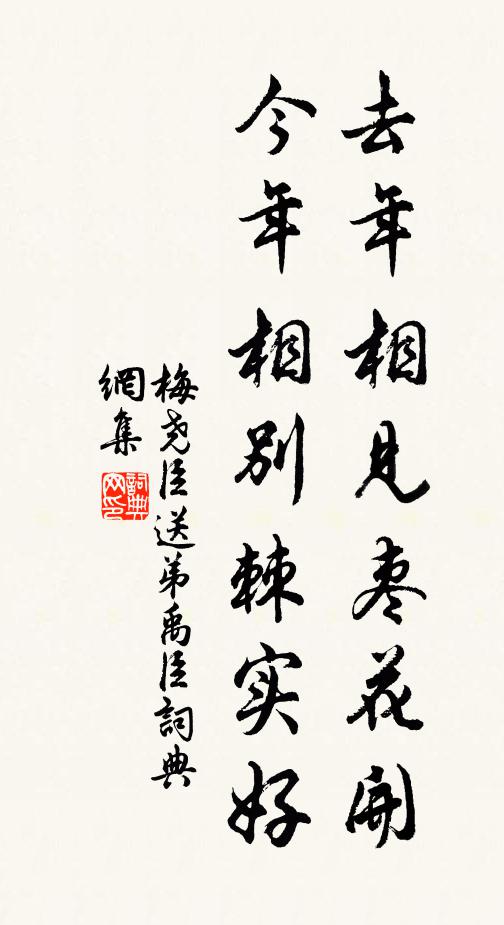 去年相见枣花开
今年相别棘实好
梅尧臣送弟禹臣詞典
網集
詞典
网印